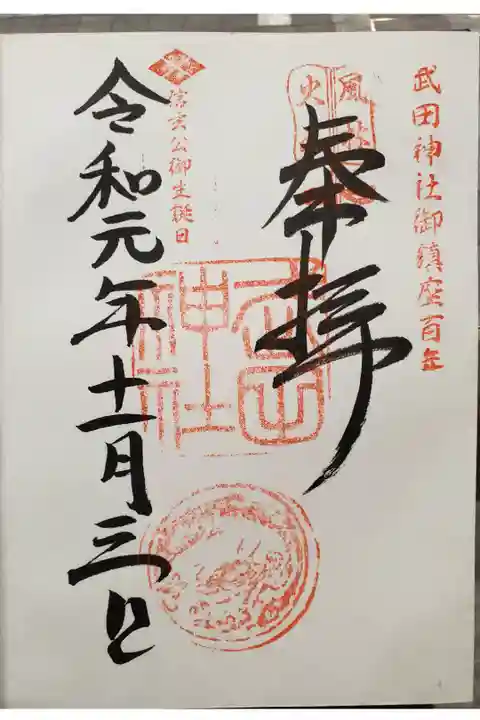 武田神社御鎮座百年
風林
火山
奉拝
武田
神社
信玄公御生誕日
令和元年十一月三日